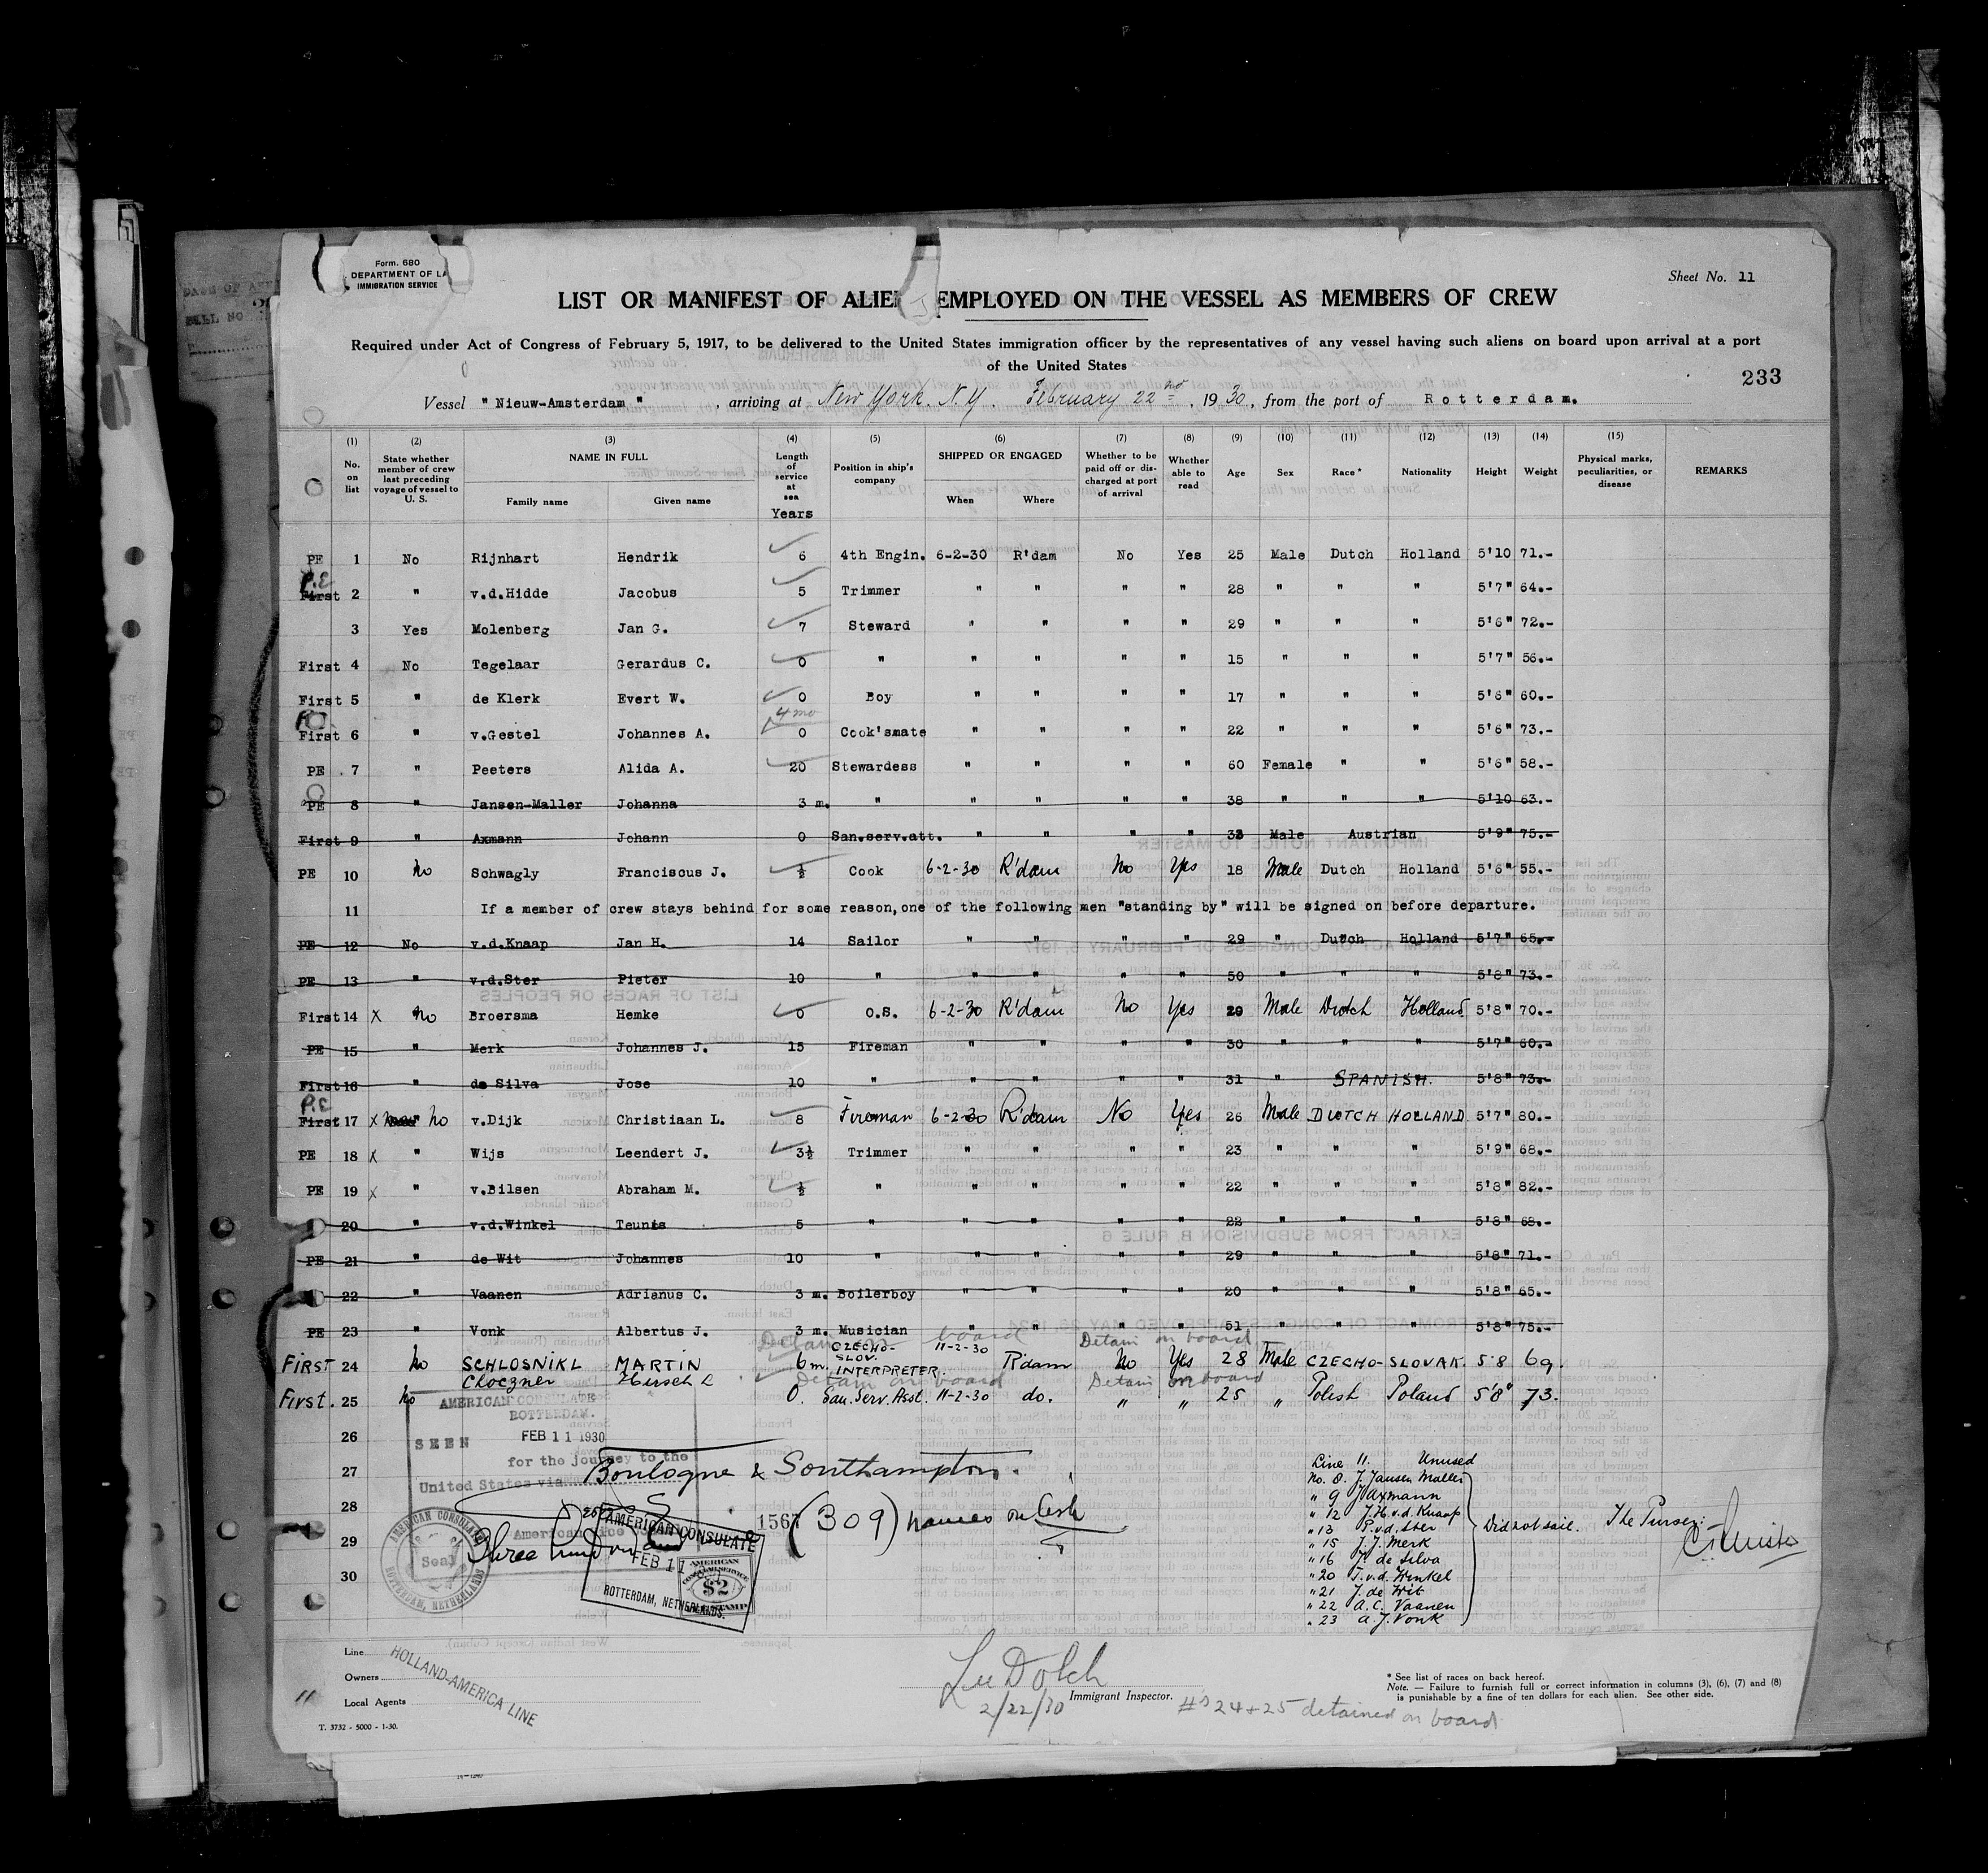 Form. 680
DEPARTMENT OF LA
IMMIGRATION SERVICE
Sheet No. 11
LIST OR MANIFEST OF ALIE EMPLOYED ON THE VESSEL AS MEMBERS OF CREW
Required under Act of Congress of February 5, 1917, to be delivered to the United States immigration officer by the representatives of any vessel having such aliens on board upon arrival at a port
of the United States
233
Vessel " Nieuw-Amsterdam ", arriving at New York. N.Y. February 22nd, 1930, from the port of Rotterdam.
(1) No. on list (2) State whether member of crew last preceding voyage of vessel to U. S. (3) NAME IN FULL Family name Given name (4) Length of service at sea Years (5) Position in ship's company (6) SHIPPED OR ENGAGED When Where (7) Whether to be paid off or discharged at port of arrival (8) Whether able to read (9) Age (10) Sex (11) Race* (12) Nationality (13) Height (14) Weight (15) Physical marks, peculiarities, or disease REMARKS
PE 1 No Rijnhart Hendrik 6 4th Engin. 6-2-30 R'dam No Yes 25 Male Dutch Holland 5'10 71.-
P.E
First 2 " v.d.Hidde Jacobus 5 Trimmer " " " " 28 " " " 5'7" 64.-
3 Yes Molenberg Jan G. 7 Steward " " " " 29 " " " 5'6" 72.-
First 4 No Tegelaar Gerardus C. 0 " " " " " 15 " " " 5'7" 56.-
First 5 " de Klerk Evert W. 0 Boy " " " " 17 " " " 5'6" 60.-
4 mo
First 6 " v.Gestel Johannes A. 0 Cook'smate " " " " 22 " " " 5'6" 73.-
PE 7 " Peeters Alida A. 20 Stewardess " " " " 60 Female " " 5'6" 58.-
PE 8 " Jansen-Maller Johanna 3 m. " " " " " 38 " " " 5'10 63.-
First 9 " Axmann Johann 0 San.serv.att. " " " " 33 Male Austrian 5'9" 75.-
PE 10 No Schwagly Franciscus J. ½ Cook 6-2-30 R'dam No Yes 18 Male Dutch Holland 5'6" 55.-
11 If a member of crew stays behind for some reason,one of the following men "standing by" will be signed on before departure.
PE 12 No v.d.Knaap Jan H. 14 Sailor " " " " 29 " Dutch Holland 5'7" 65.-
PE 13 " v.d.Ster Pieter 10 " " " " " 50 " " " 5'8" 73.-
First 14 X No Broersma Hemke 0 O.S. 6-2-30 R'dam No Yes 20 Male Dutch Holland 5'8" 70.-
PE 15 " Merk Johannes J. 15 Fireman " " " " 30 " " " 5'7" 60.-
First 16 " de Silva Jose 10 " " " " " 31 " SPANISH. 5'8" 73.-
P.E
First 17 X No v.Dijk Christiaan L. 8 Fireman 6-2-30 R'dam No Yes 26 Male DUTCH HOLLAND 5'7" 80.-
PE 18 X " Wijs Leendert J. 3½ Trimmer " " " " 23 " " " 5'9" 68.-
PE 19 X " v.Bilsen Abraham M. ½ " " " " " 22 " " " 5'8" 82.-
20 " v.d.Winkel Teunis 5 " " " " " 22 " " " 5'8" 68.-
PE 21 " de Wit Johannes 10 " " " " " 29 " " " 5'8" 71.-
22 " Vaanen Adrianus C. 3 m. Boilerboy " " " " 20 " " " 5'8" 65.-
PE 23 " Vonk Albertus J. 3 m. Musician " " " " 51 " " " 5'8" 75.-
Detain on board Detain on board
FIRST 24 No SCHLOSNIKL MARTIN 6m. CZECHO-SLOV. INTERPRETER. 11-2-30 R'dam No Yes 28 Male CZECHO-SLOVAK. 5'8 69.
Detain on board Detain on board
First. 25 No Cloezner Hirsch L 0. San. Serv. Asst. 11-2-30 do. " " 25 " Polish Poland 5'8" 73.
26
27
28
29
30
AMERICAN CONSULATE
ROTTERDAM.
SEEN FEB 11 1930
for the journey to the
United States via Boulogne & Southampton.
1567 (309) names on list
Three hundred and
AMERICAN CONSULATE
FEB 11
ROTTERDAM, NETHERLANDS.
AMERICAN CONSULAR SERVICE
$2
STAMP
AMERICAN CONSULATE
Seal
ROTTERDAM, NETHERLANDS
Line 11. Unused
No. 8. J. Jansen Maller
" 9 J Axmann
" 12 J.H.v.d. Knaap
" 13 P.v.d. Ster
" 15 J.J. Merk
" 16 J. de Silva
" 20 T.v.d. Winkel
" 21 J. de Wit
" 22 A.C. Vaanen
" 23 A.J. Vonk
Did not sail. The Purser:
Line
Owners
Local Agents
HOLLAND-AMERICA LINE
11
T. 3732 - 5000 - 1-30.
Lee Dolch
2/22/30 Immigrant Inspector.
#s 24+25 detained on board
* See list of races on back hereof.
Note. — Failure to furnish full or correct information in columns (3), (6), (7) and (8)
is punishable by a fine of ten dollars for each alien. See other side.